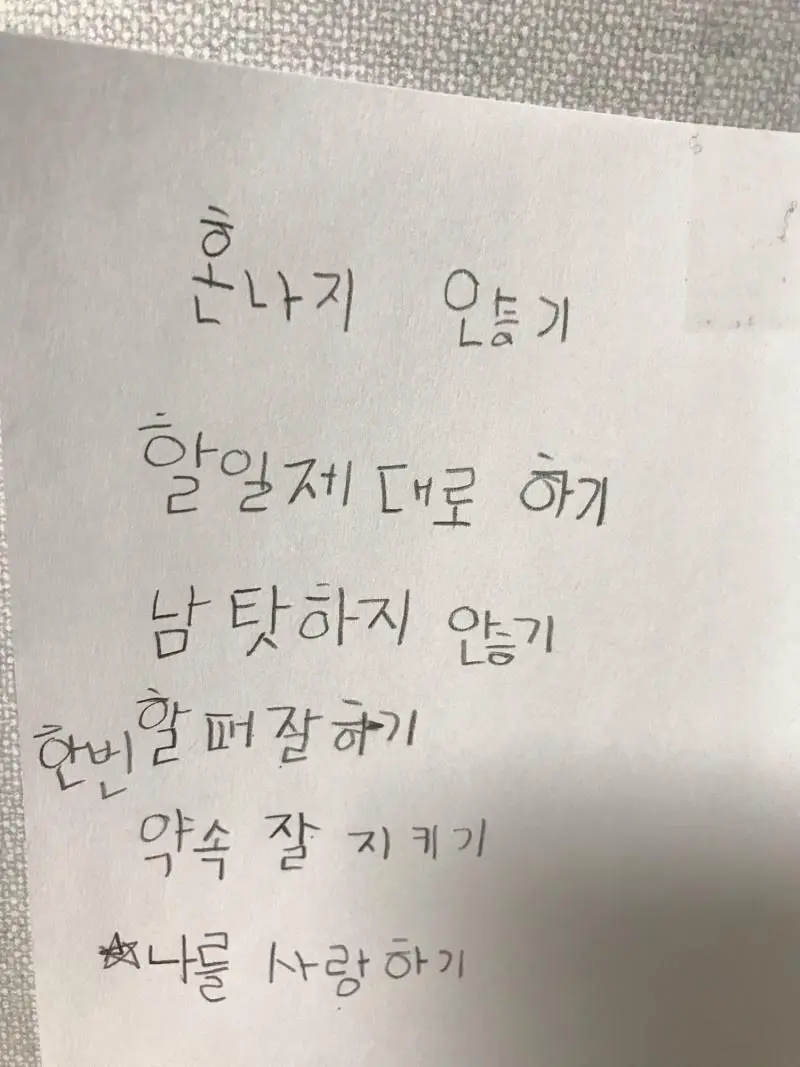 혼나지 않기
할일제대로 하기
남 탓하지 않기
한번할때잘하기
약속 잘 지키기
☆나를 사랑하기